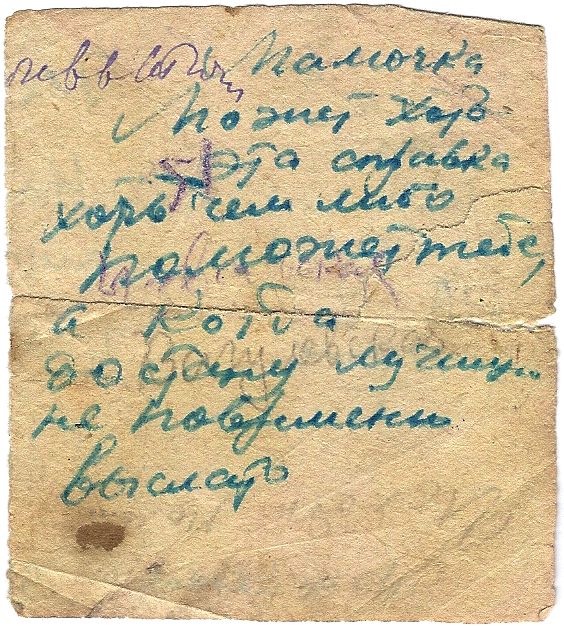 Мамочка
Может хоть
эта справка
хоть чем либо
поможет тебе,
а когда
достану лучшую
не повременю
выслать